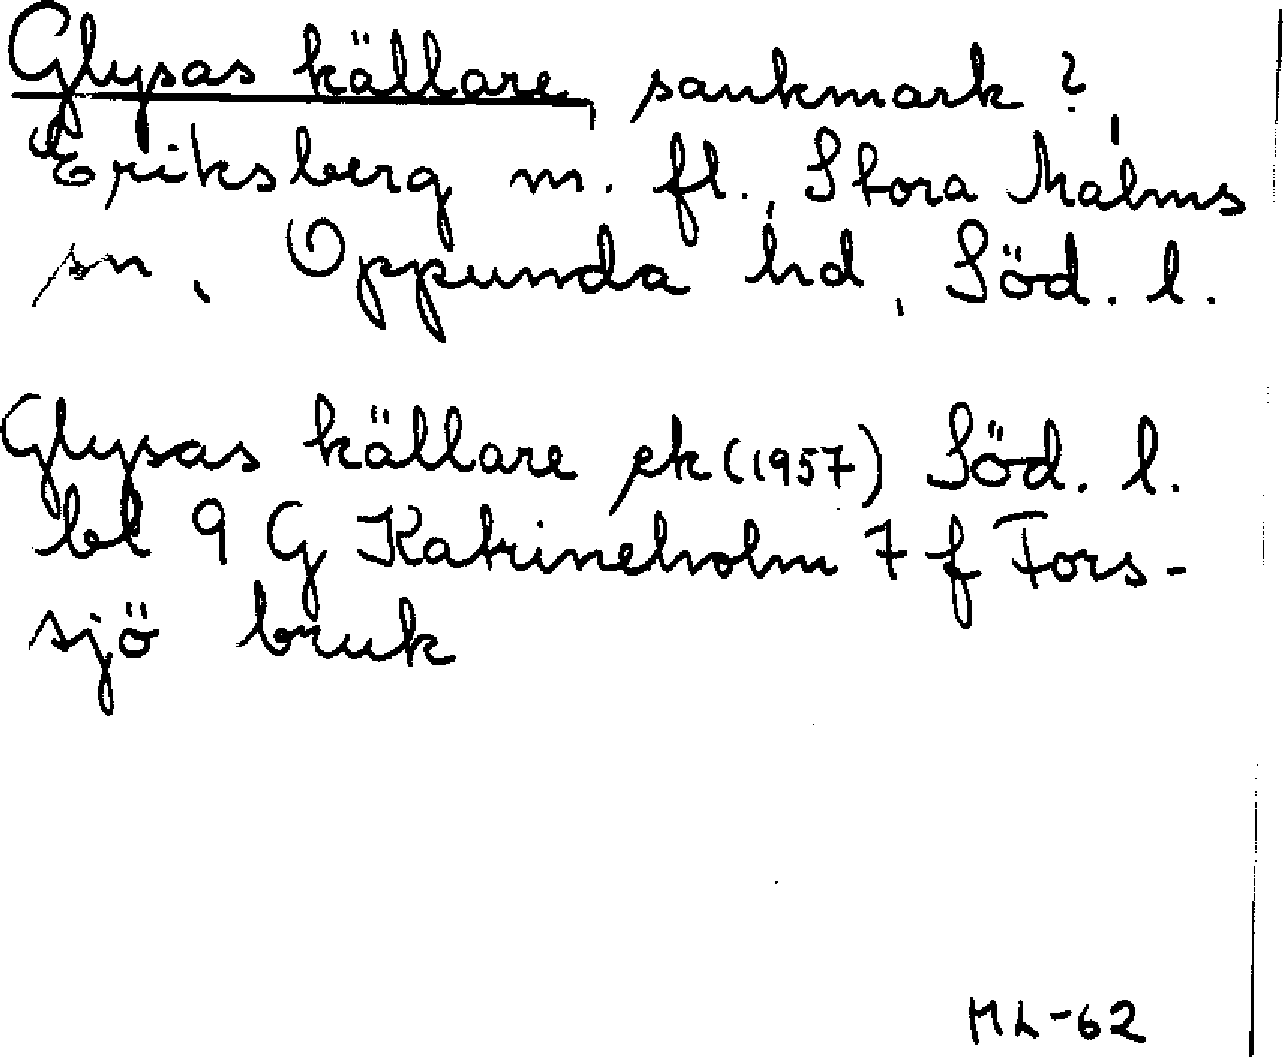 Glysas källare, sankmark?,
Eriksberg m. fl., Stora Malms
sn, Oppunda hd, Söd. l.
Glysas källare ek (1957) Söd. l.
bl 9 G Katrineholm 7 f Fors-
sjö bruk
ML-62